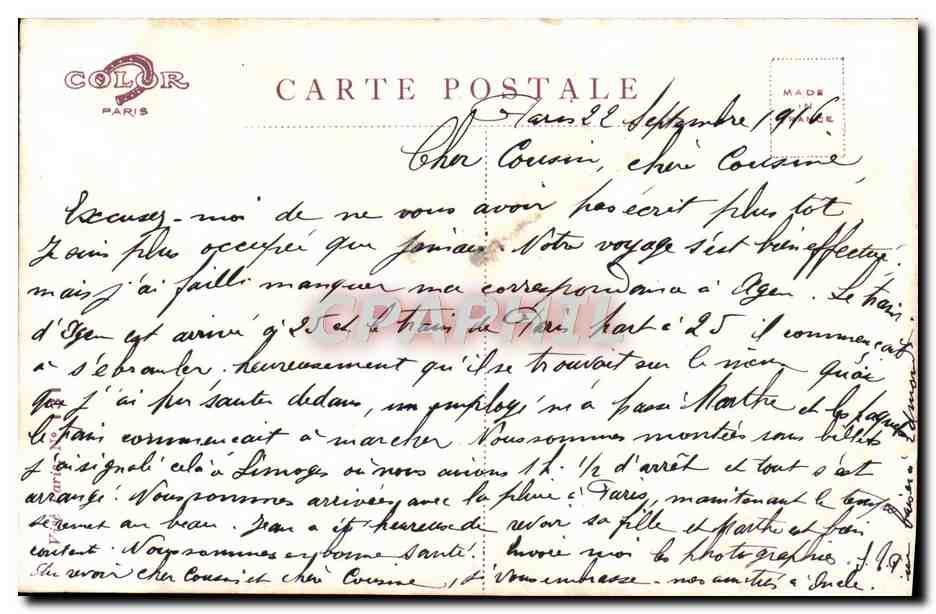 COLOR
PARIS
CARTE POSTALE
MADE
IN
FRANCE
Paris 22 Septembre 1916
Cher Cousin, chère Cousine,
Excusez-moi de ne vous avoir pas écrit plus tôt
Je suis plus occupée que jamais. Notre voyage s'est bien effectué.
mais j'ai failli manquer ma correspondance à Agen. Le train
d'Agen est arrivé à 25 et le train de Paris part à 25 il commençait
à s'ébranler. heureusement qu'il se trouvait sur le même quai
j'ai pu sauter dedans, un employé m'a passé Marthe et les paquets
le train commençait à marcher. Nous sommes montées sans billets
j'ai signalé cela à Limoges où nous avions 1 h. 1/2 d'arrêt et tout s'est
arrangé. Nous sommes arrivées avec la pluie à Paris, maintenant le temps
se remet au beau. Jean a été heureux de revoir sa fille et Marthe est bien
contente. Nous sommes en bonne santé. Envoie moi les photographies. S.V.P.
Au revoir cher Cousin et chère Cousine, je vous embrasse - nos amitiés à Oncle.
CPAPHIL